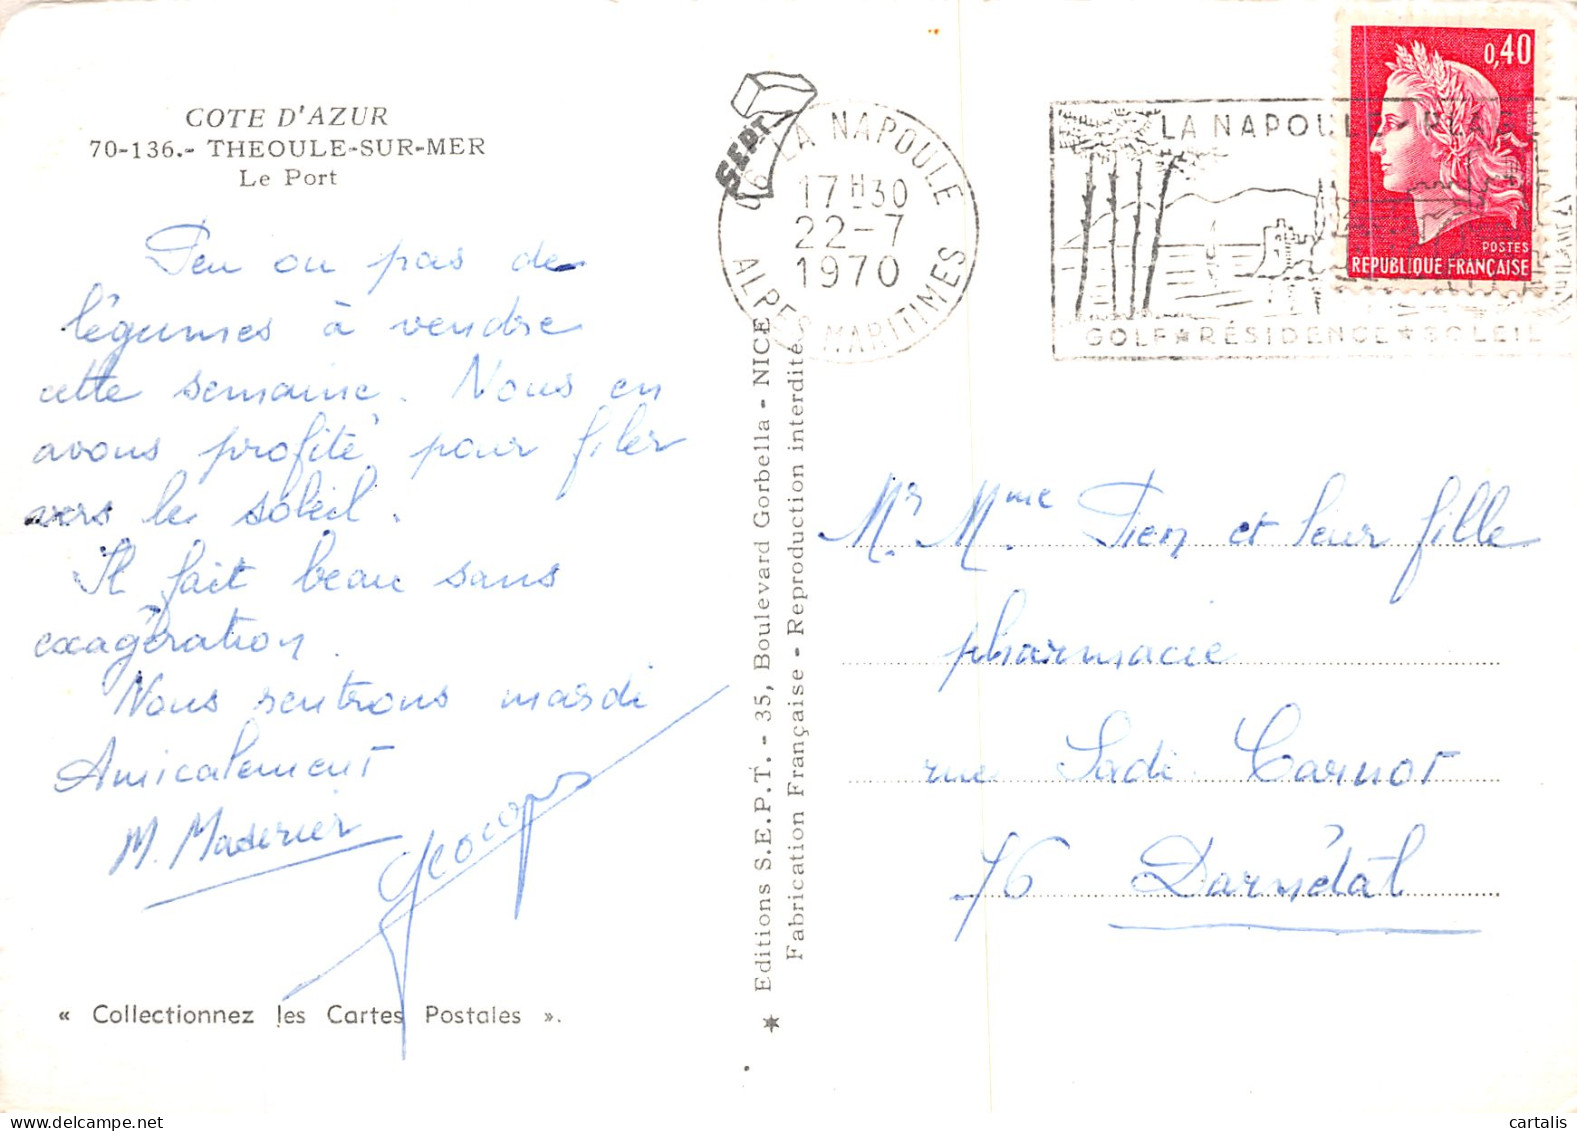 COTE D'AZUR
70-136.- THEOULE-SUR-MER
Le Port
Peu ou pas de
légumes à vendre
cette semaine. Nous en
avons profité pour filer
vers le soleil.
Il fait beau sans
exagération.
Nous rentrons mardi
Amicalement
M.
« Collectionnez les Cartes Postales ».
Editions S.E.P.T. - 35, Boulevard Gorbella - NICE
Fabrication Française - Reproduction interdite
SEPT
06 LA NAPOULE
17H30
22-7
1970
ALPES MARITIMES
LA NAPOULE - PLAGE
GOLF ★ RÉSIDENCE ★ SOLEIL
0,40
POSTES
REPUBLIQUE FRANÇAISE
Mr Mme Pien et leur fille
pharmacie
rue Sadi Carnot
76 Darnétal
cartalis